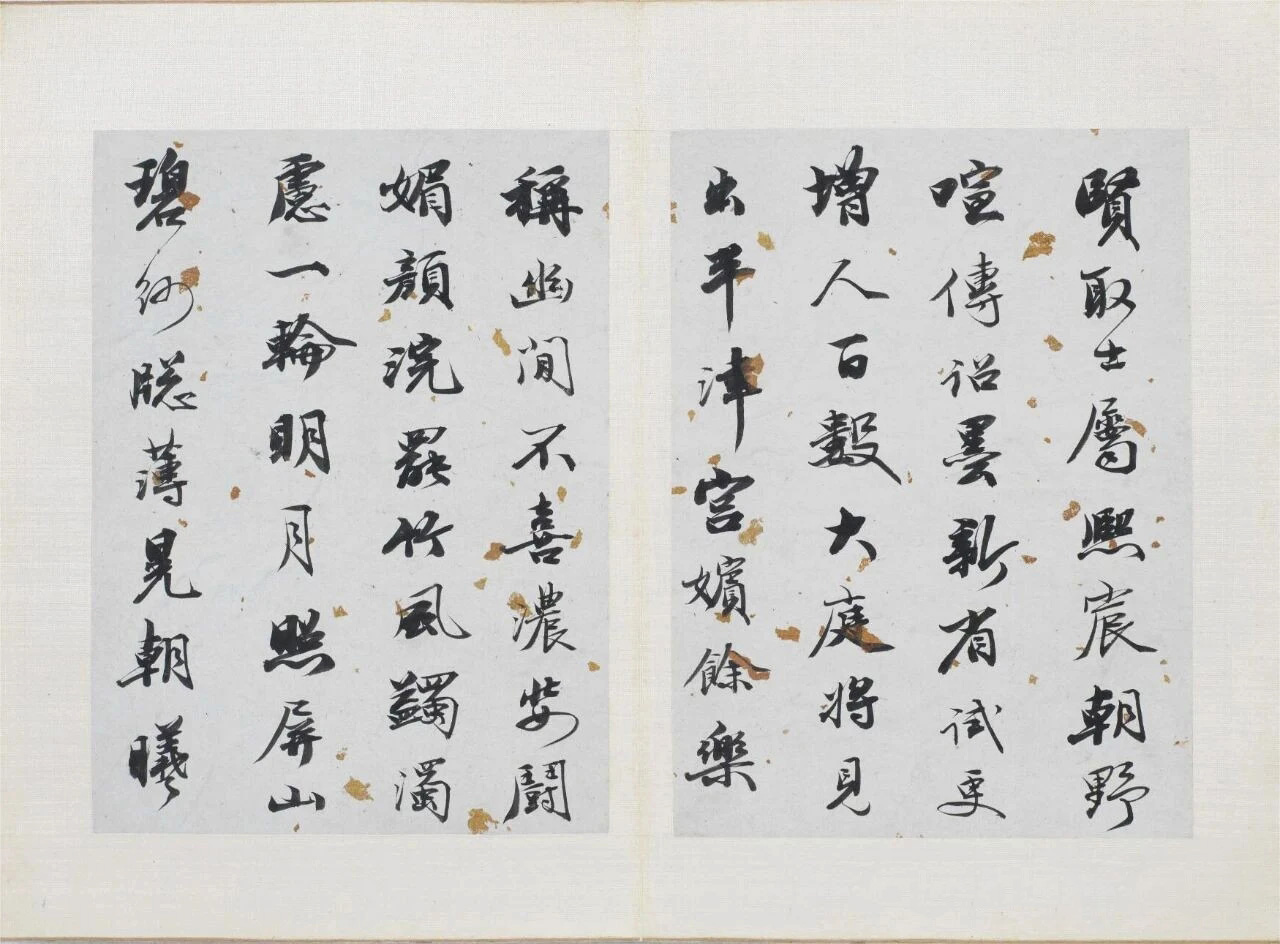 賢取士屬熙宸朝野
喧傳詔墨新省試更
增人百數大庭將見
出平津宮嬪餘樂
稱幽閒不喜濃妝鬪
媚顏浣罷竹風蠲濁
慮一輪明月照屏山
碧紗牕薄晃朝曦